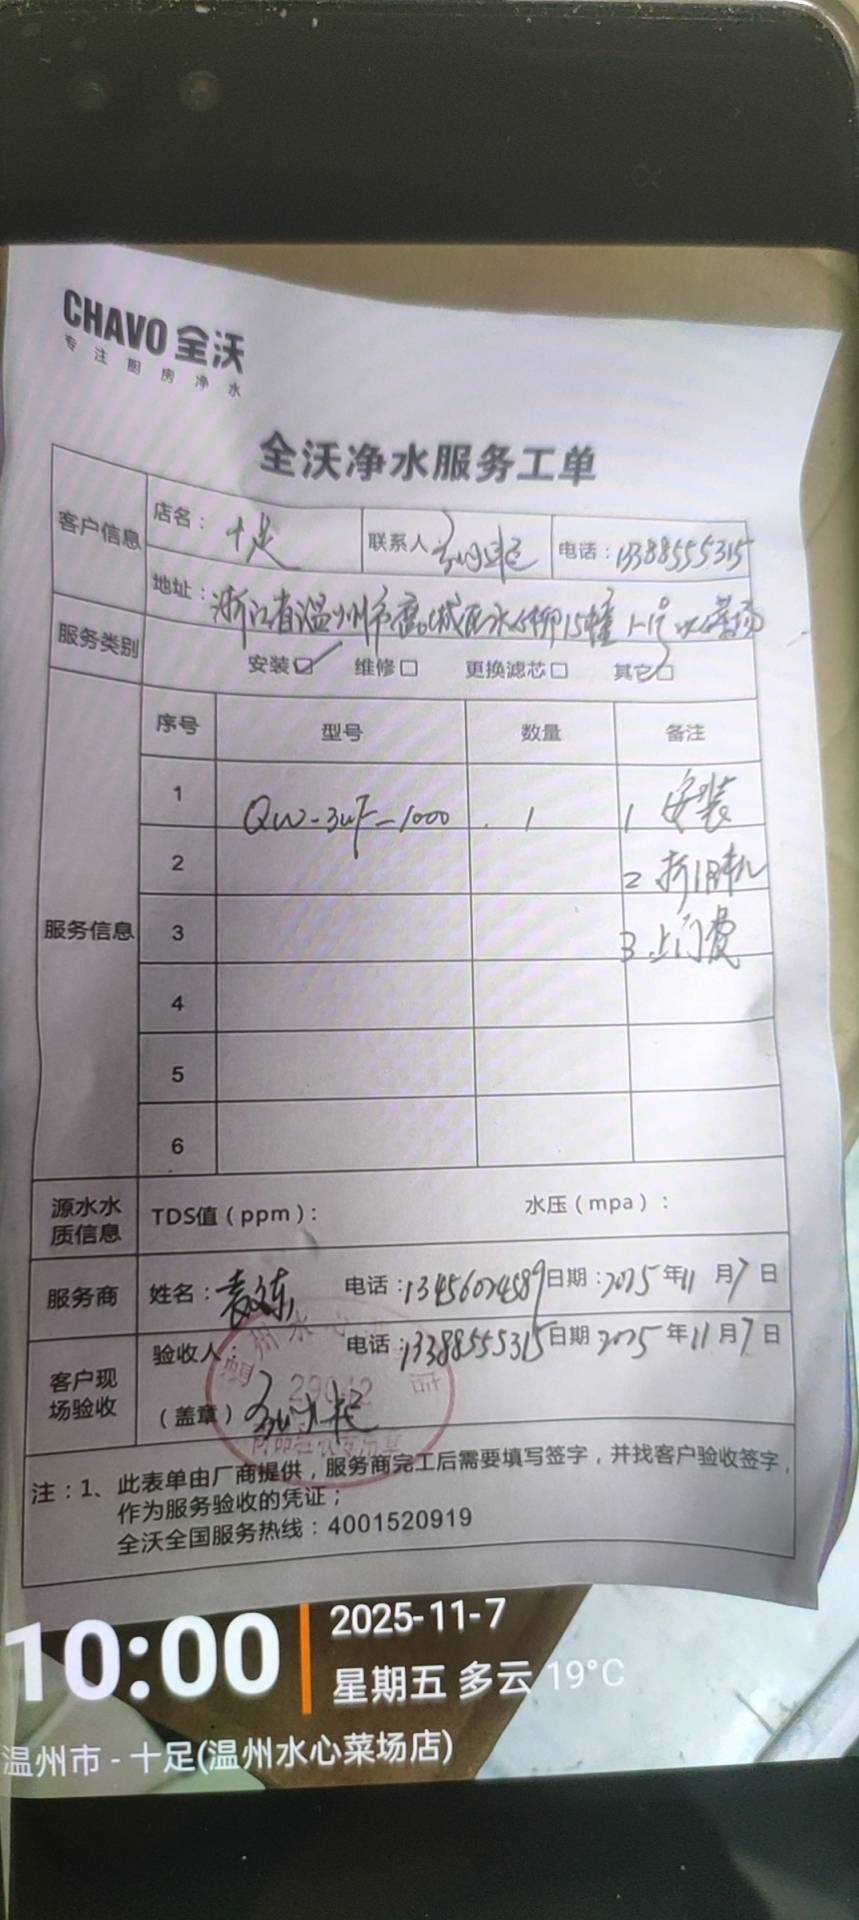 CHAVO 全沃
专注厨房净水
全沃净水服务工单
客户信息 店名：十足 联系人 电话：13388555315
地址：浙江省温州市鹿城区水心柳15幢1-1号
服务类别 安装☑ 维修□ 更换滤芯□ 其它□
服务信息 序号 型号 数量 备注
1 QW-3uF-1000 1 1 安装
2 2 拆旧机
3 3.上门费
4
5
6
源水水质信息 TDS值（ppm）： 水压（mpa）：
服务商 姓名：袁文东 电话：13456074589 日期：2025年11月7日
客户现场验收 验收人： 电话：13388555315 日期 2025年11月7日
（盖章）
注：1、此表单由厂商提供，服务商完工后需要填写签字，并找客户验收签字，
作为服务验收的凭证；
全沃全国服务热线：4001520919
10:00
2025-11-7
星期五 多云 19°C
温州市 - 十足(温州水心菜场店)